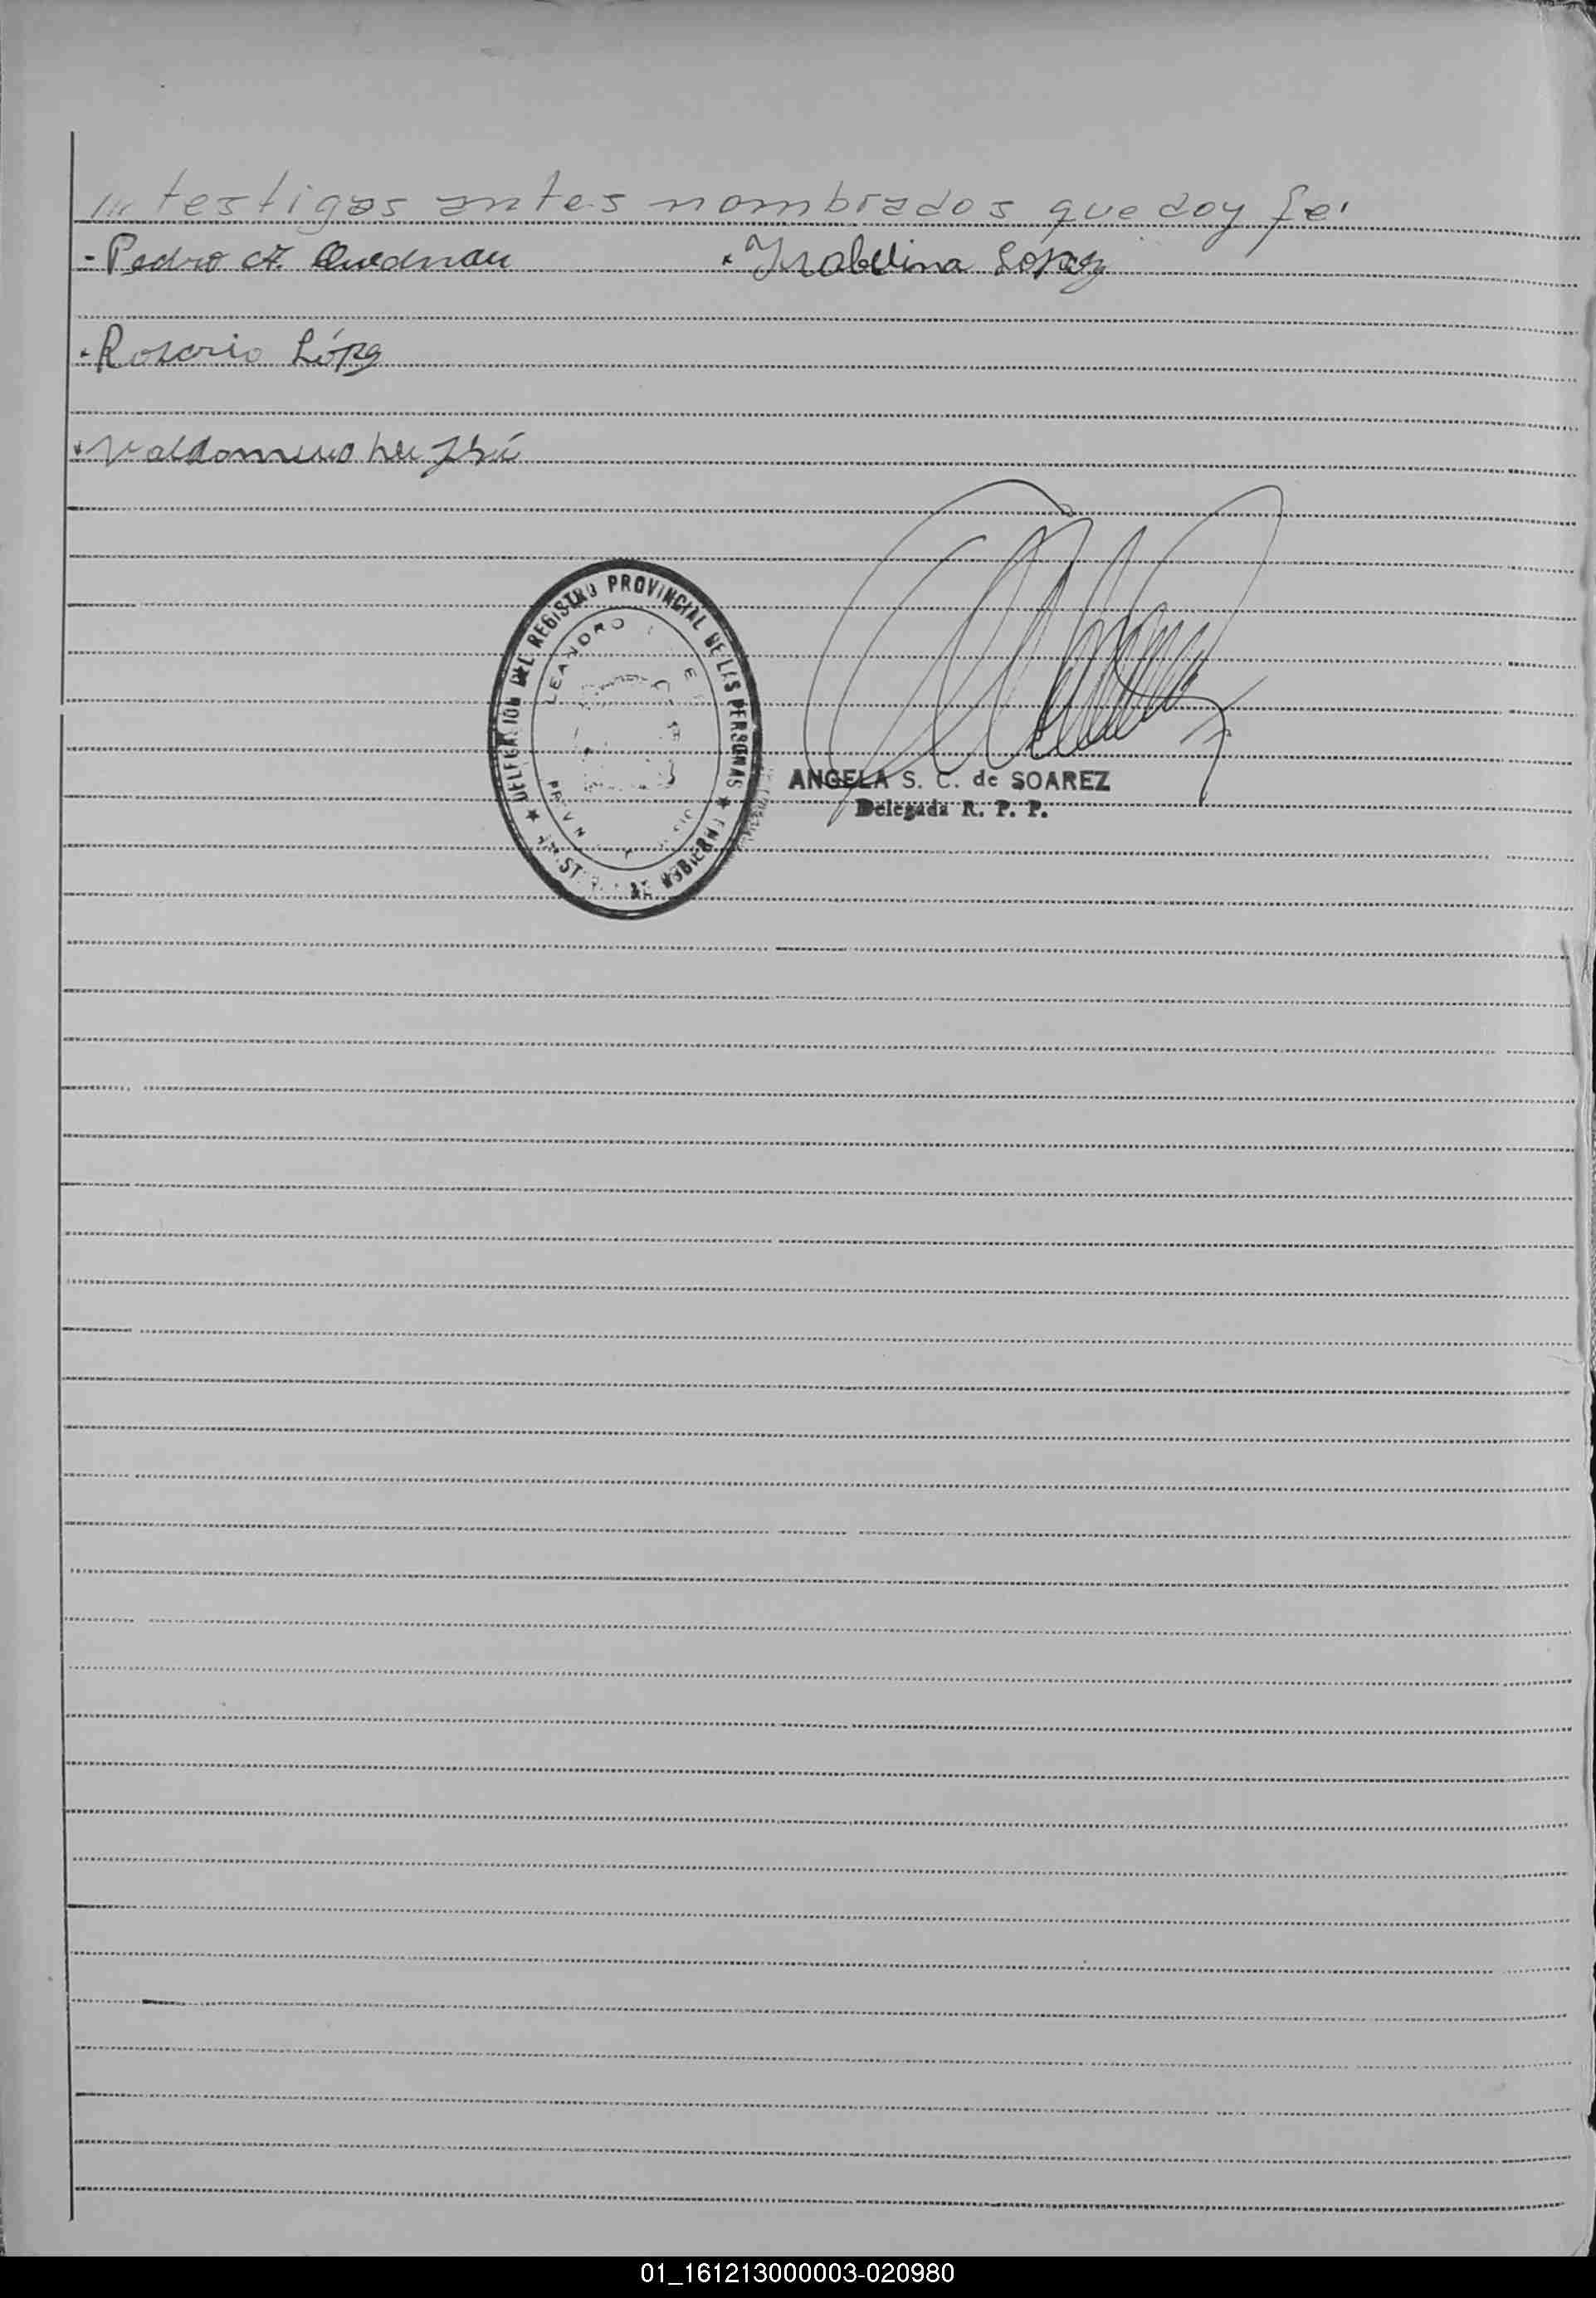 /// testigos antes nombrados que doy fe'
- Pedro A. Quednau
. Ysabelina Lopez
. Rosario López
. Valdomero
DELEGACION DEL REGISTRO PROVINCIAL DE LAS PERSONAS
LEANDRO
ANGELA S. C. de SOAREZ
Delegada R. P. P.
01_161213000003-020980